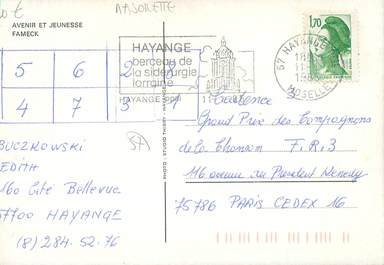 MAJORETTE
AVENIR ET JEUNESSE
FAMECK
HAYANGE
berceau de
la sidérurgie
lorraine
HAYANGE PPAL
57 HAYANGE
MOSELLE
1,70
5 6 2 8
4 7 3 1
SA
BUCZKOWSKI
EDITH
160 Cité Bellevue
57700 HAYANGE
(8) 284.52.76
PHOTO : STUDIO THIERRY - HAYANGE
Cadence 3
Grand Prix des Compagnons
de la Chanson F.R.3
116 avenue du Président Kennedy
75786 PARIS CEDEX 16